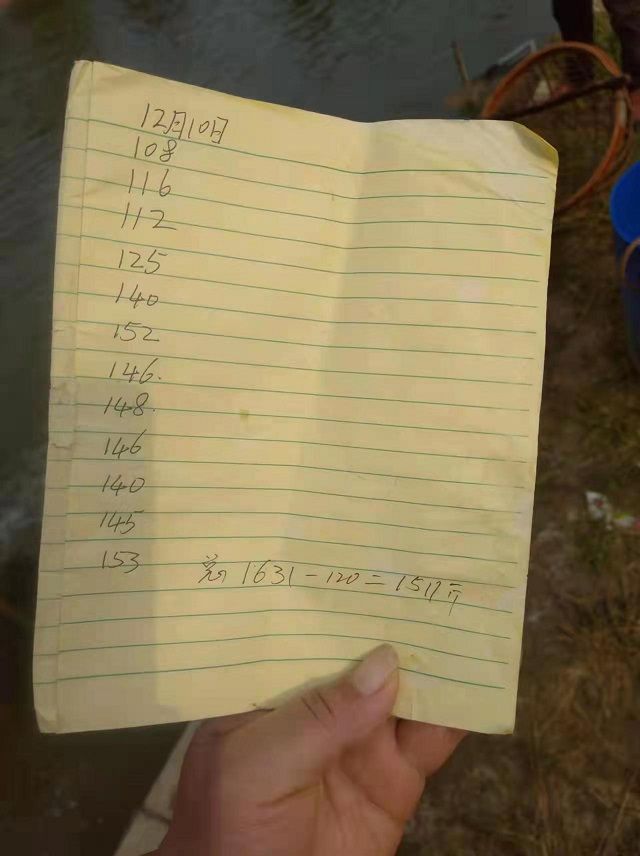 12月10日
108
116
112
125
140
152
146.
148.
146
140
145
153
1631-120=1511斤